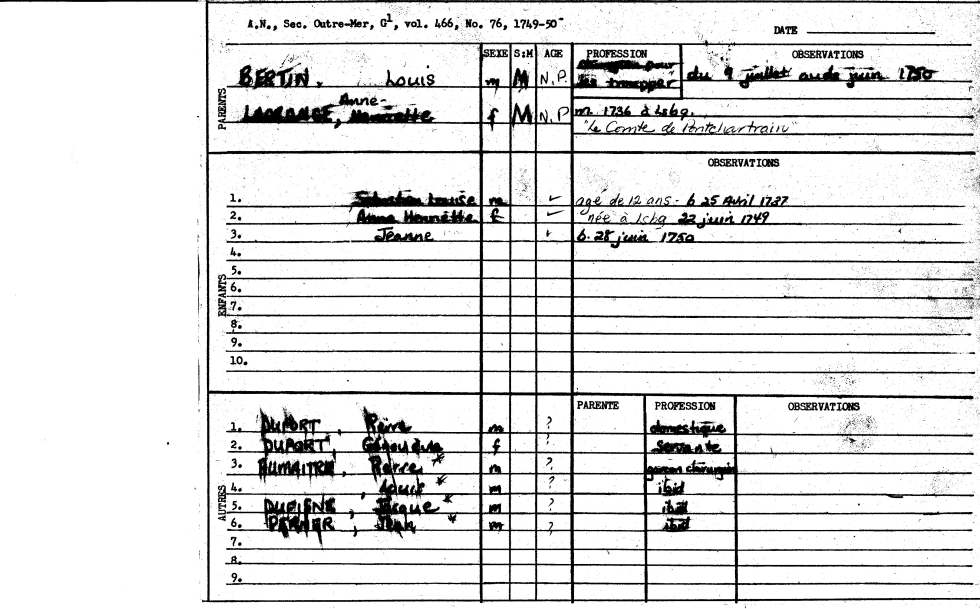 A.N., Sec. Outre-Mer, G1, vol. 466, No. 76, 1749-50
DATE
SEXE S:M AGE PROFESSION OBSERVATIONS
PARENTS
BERTIN, Louis m M N.P. chirurgien pour les troupes du 9 juillet au de juin 1750
Anne-
LAGRANGE, Henriette f M N.P m. 1736 à Lsbg.
"le Comte de Pontchartrain"
OBSERVATIONS
ENFANTS
1. Sébastien Louise m ✓ agé de 12 ans - b 25 Avril 1737
2. Anne Henriette f ✓ née à Lsbg 22 juin 1749
3. Jeanne ✓ b. 28 juin 1750
4.
5.
6.
7.
8.
9.
10.
PARENTE PROFESSION OBSERVATIONS
AUTRES
1. DUPORT, Pierre m ? domestique
2. DUPORT, f ? servante
3. Pierre * m ? garcon chirurgien
4. , Louis * m ? ibid
5. , Jacque * m ? ibid
6. , Jean * m ? ibid
7.
8.
9.